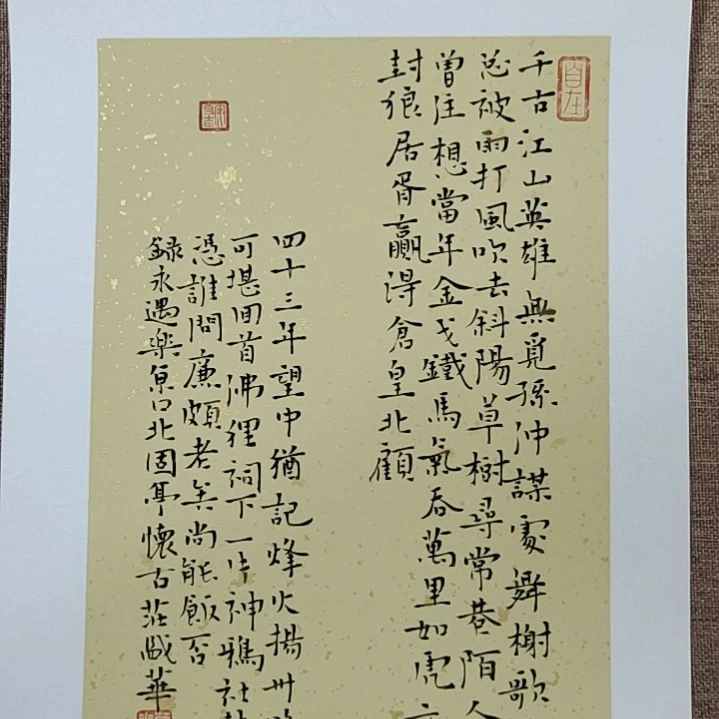 自在
千古江山英雄無覓孫仲謀處舞榭歌
总被雨打風吹去斜陽草樹尋常巷陌人
曾住想當年金戈鐵馬氣吞萬里如虎
封狼居胥贏得倉皇北顧
四十三年望中猶記烽火揚州
可堪回首佛狸祠下一片神鴉社
憑誰問廉頗老矣尚能飯否
録永遇樂京口北固亭懷古